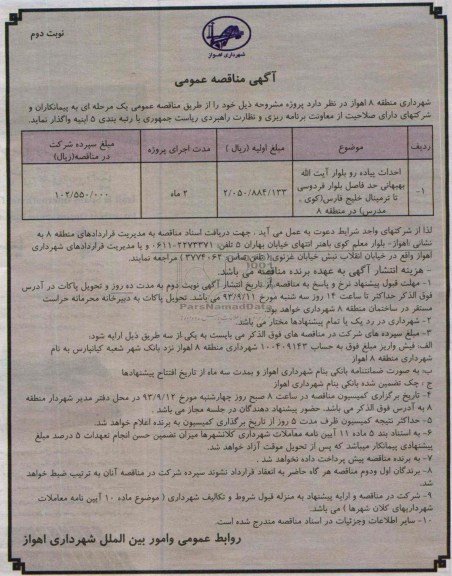 نوبت دوم
شهرداری اهواز
آگهی مناقصه عمومی
شهرداری منطقه ۸ اهواز در نظر دارد پروژه مشروحه ذیل خود را از طریق مناقصه عمومی یک مرحله ای به پیمانکاران و
شرکتهای دارای صلاحیت از معاونت برنامه ریزی و نظارت راهبردی ریاست جمهوری با رتبه بندی ۵ ابنیه واگذار نماید.
ردیف موضوع مبلغ اولیه (ریال) مدت اجرای پروژه مبلغ سپرده شرکت در مناقصه(ریال)
۱- احداث پیاده رو بلوار آیت الله بهبهانی حد فاصل بلوار فردوسی تا ترمینال خلیج فارس(کوی مدرس) در منطقه ۸ ۲/۰۵۰/۸۸۴/۱۳۳ ۲ ماه ۱۰۲/۵۵۰/۰۰۰
لذا از شرکتهای واجد شرایط دعوت به عمل می آید . جهت دریافت اسناد مناقصه به مدیریت قراردادهای منطقه ۸ به
نشانی اهواز- بلوار معلم کوی باهنر انتهای خیابان بهاران ۵ تلفن: ۰۶۱۱-۲۲۷۳۳۷۱ و یا مدیریت قراردادهای شهرداری
اهواز واقع در خیابان انقلاب نبش خیابان غزنوی( تلفن تماس ۳۷۷۴۰۶۲ ) مراجعه نمایند.
- هزینه انتشار آگهی به عهده برنده مناقصه می باشد.
۱- مهلت قبول پیشنهاد نرخ و پاسخ به مناقصه از تاریخ انتشار آگهی نوبت دوم به مدت ده روز و تحویل پاکات در آدرس
فوق الذکر حداکثر تا ساعت ۱۴ روز سه شنبه مورخ ۹۳/۹/۱۱ می باشد. تحویل پاکات به دبیرخانه محرمانه حراست
مستقر در ساختمان منطقه ۸ شهرداری خواهد بود.
۲- شهرداری در رد یک یا تمام پیشنهادها مختار می باشد.
۳- مبلغ سپرده های شرکت در مناقصه های فوق الذکر می بایست به یکی از سه طریق ذیل ارایه شود:
الف- فیش واریز مبلغ فوق به حساب ۱۰۰۴۰۹۱۴۳ شهرداری منطقه ۸ اهواز نزد بانک شهر شعبه کیانپارس به نام
شهرداری منطقه ۸ اهواز
ب- به صورت ضمانتنامه بانکی بنام شهرداری اهواز و بمدت سه ماه از تاریخ افتتاح پیشنهادها
ج : چک تضمین شده بانکی بنام شهرداری اهواز
۴- تاریخ برگزاری کمیسیون مناقصه در ساعت ۸ صبح روز چهارشنبه مورخ ۹۳/۹/۱۲ در محل دفتر مدیر شهردار منطقه
۸ به آدرس فوق الذکر می باشد. حضور پیشنهاد دهندگان در جلسه مجاز می باشد.
۵- حداکثر نتیجه کمیسیون ظرف مدت ۵ روز از تاریخ برگزاری کمیسیون به برنده اعلام خواهد شد.
۶- به استناد بند ۵ ماده ۱۱ آیین نامه معاملات شهرداری کلانشهرها میزان تضمین حسن انجام تعهدات ۵ درصد مبلغ
پیشنهادی پیمانکار میباشد که پس از تحویل موقت آزاد خواهد شد.
۷- به برنده مناقصه پیش پرداخت داده نخواهد شد.
۸- برندگان اول ودوم مناقصه هر گاه حاضر به انعقاد قرارداد نشوند سپرده شرکت در مناقصه آنان به ترتیب ضبط خواهد
شد.
۹- شرکت در مناقصه و ارایه پیشنهاد به منزله قبول شروط و تکالیف شهرداری ( موضوع ماده ۱۰ آیین نامه معاملات
شهرداریهای کلان شهرها ) می باشد.
۱۰- سایر اطلاعات وجزئیات در اسناد مناقصه مندرج شده است.
روابط عمومی وامور بین الملل شهرداری اهواز